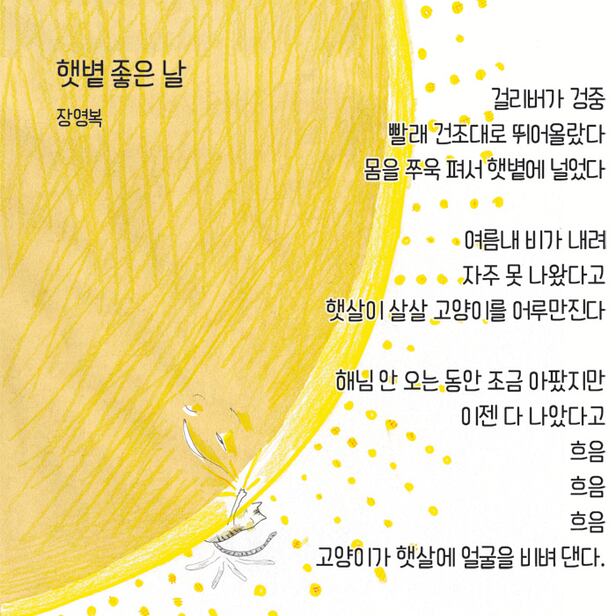 햇볕 좋은 날
장영복
걸리버가 겅중
빨래 건조대로 뛰어올랐다
몸을 쭈욱 펴서 햇볕에 널었다
여름내 비가 내려
자주 못 나왔다고
햇살이 살살 고양이를 어루만진다
해님 안 오는 동안 조금 아팠지만
이젠 다 나았다고
흐음
흐음
흐음
고양이가 햇살에 얼굴을 비벼 댄다.